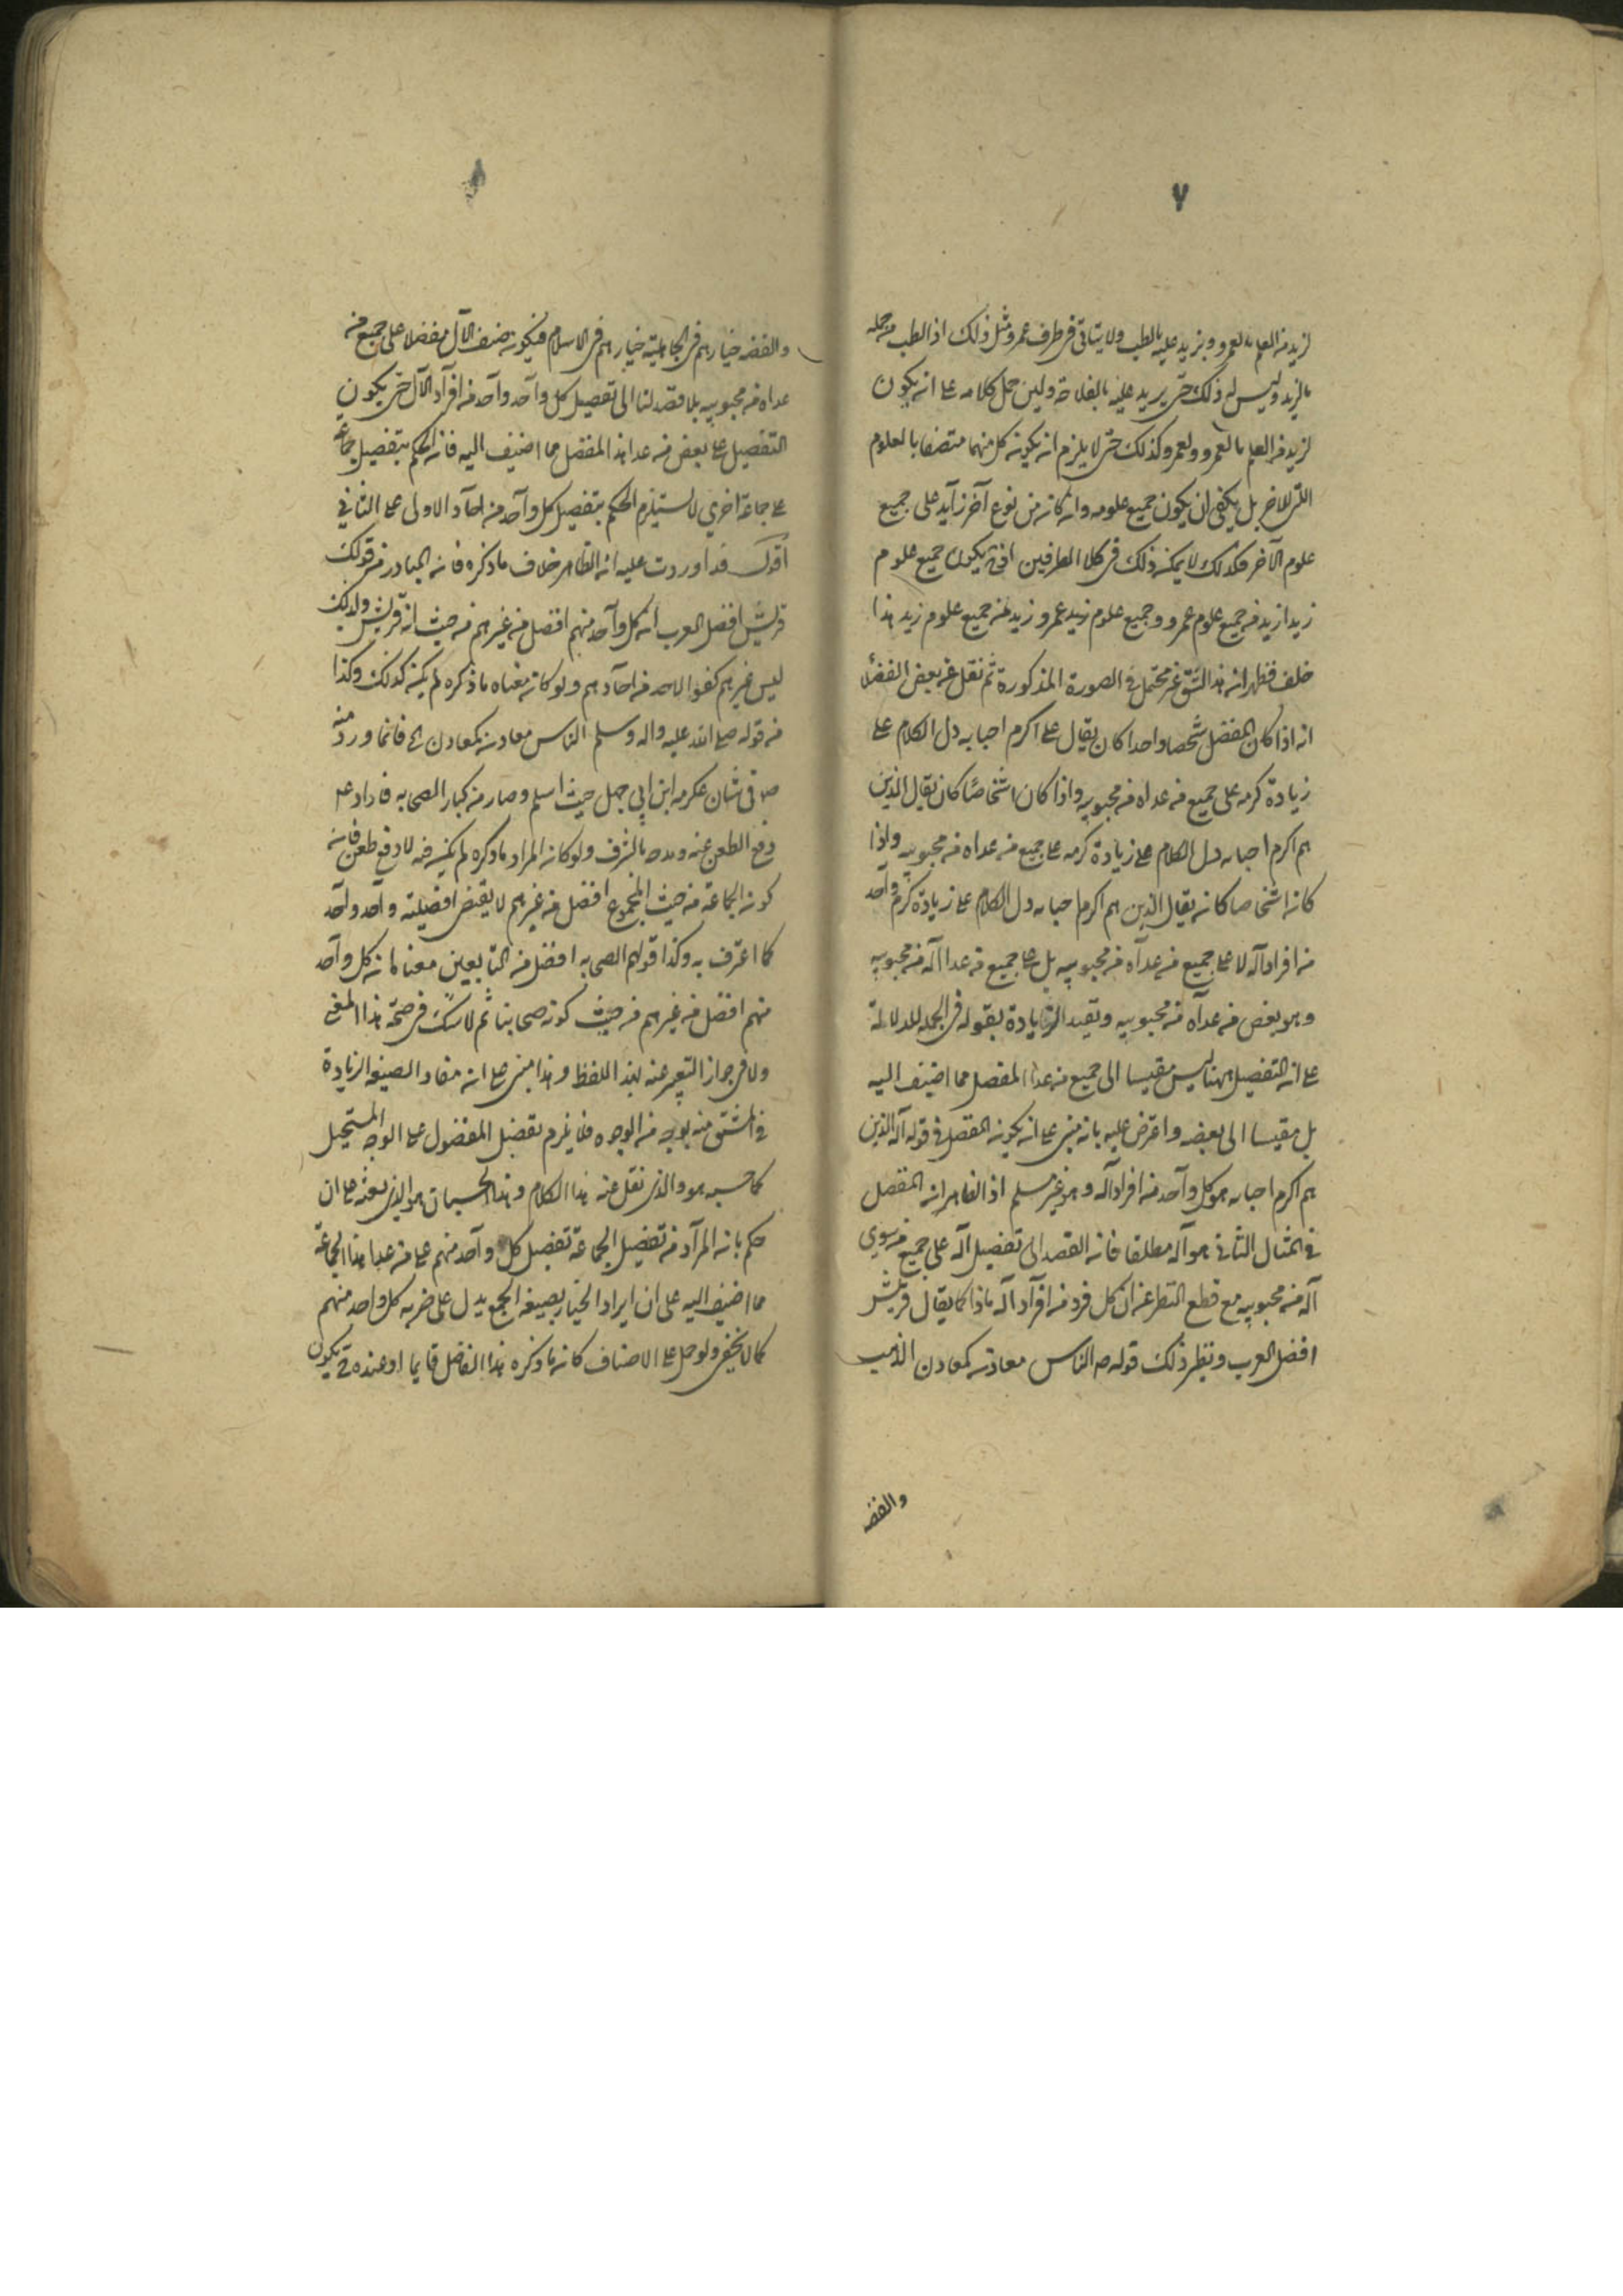 ٧
لزيد من العلم ما لعمرو ويزيد عليه بالطب ولا يتأتى في طرف عمرو مثل ذلك اذ الطب من جمله
ما لزيد وليس له ذلك حتى يزيد عليه بالفلاحة ولئن حمل كلامه على انه يكون
لزيد من العلم ما لعمرو ولعمرو كذلك حتى لا يلزم ان يكون كل منهما متصفا بالعلوم
التى للاخر بل يكفى ان يكون جميع علومه وان كان من نوع آخر زايد على جميع
علوم الآخر فكذلك لا يمكن ذلك في كلا الطرفين اذ يكون جميع علوم
زيد ازيد من جميع علوم عمرو وجميع علوم عمرو ازيد من جميع علوم زيد هذا
خلف فظهر ان هذا الشق غير محتمل في الصورة المذكورة ثم نقل عن بعض الفضلا
انه اذا كان المفضل شخصا واحدا كان يقال على اكرم احبابه دل الكلام على
زيادة كرمه على جميع من عداه من محبوبيه واذا كان اشخاصا كان يقال الذين
هم اكرم احبابه دل الكلام على زيادة كرمه على جميع من عداه من محبوبيه واذا
كان اشخاصا كان يقال الذين هم اكرم احبابه دل الكلام على زيادة كرم واحد
من افراد آله لا على جميع من عداه من محبوبيه بل على جميع من عدا آله من محبوبيه
وهو بعض من عداه من محبوبيه وتقييد الزيادة بقوله في الجمله للدلالة
على ان التفضيل ههنا ليس مقيسا الى جميع من عدا المفضل مما اضيف اليه
بل مقيسا الى بعضه واعترض عليه بانه مبنى على ان يكون المفضل في قوله آله الذين
هم اكرم احبابه هو كل واحد من افراد آله وهو غير مسلم اذ الظاهر ان المفضل
في المثال الثاني هو آله مطلقا فان القصد الى تفضيل آله على جميع من سوى
آله من محبوبيه مع قطع النظر عن ان كل فرد من افراد آله ماذا كما يقال قريش
افضل العرب ونظير ذلك قوله ص الناس معادن كمعادن الذهب
والفضه
والفضه خيارهم في الجاهلية خيارهم في الاسلام فيكون صنف الآل مفضلا على جميع من
عداه من محبوبيه بلا قصد لنا الى تفضيل كل واحد واحد من افراد الآل حتى يكون
التفضيل على بعض من عدا هذا المفضل مما اضيف اليه فان الحكم بتفضيل جماعة
على جماعة اخرى لا يستلزم الحكم بتفضيل كل واحد من احاد الاولى على الثاني
اقول قد اوردت عليه ان الظاهر خلاف ما ذكره فان المتبادر من قولك
قريش افضل العرب ان كل واحد منهم افضل من غيرهم من حيث انه قريش ولذلك
ليس غيرهم كفوا لاحد من احادهم ولو كان معناه ما ذكره لم يكن كذلك وكذا
من قوله صلى الله عليه واله وسلم الناس معادن كمعادن الخ فانما ورد منه
ص في شان عكرمه ابن ابي جهل حيث اسلم وصار من كبار الصحابه فاراد عم
دفع الطعن عنه ومدحه بالشرف ولو كان المراد ما ذكره لم يكن فيه لا دفع طعن فان
كون الجماعة من حيث المجموع افضل من غيرهم لا يقتضى افضلية واحد واحد
كما اعترف به وكذا قولهم الصحابه افضل من التابعين معناه ان كل واحد
منهم افضل من غيرهم من حيث كونه صحابيا ثم لا شك في صحة هذا المعنى
ولا في جواز التعبير عنه بهذا اللفظ وهذا مبنى على ان مفاد الصيغه الزيادة
في المشتق منه بوجه من الوجوه فلا يلزم تفضيل المفضول على الوجه المستحيل
كما حسبه هو والذى نقل عنه هذا الكلام وهذا الحسبان هو الذى بعثه على ان
حكم بان المراد من تفضيل الجماعة تفضيل كل واحد منهم على من عدا هذا الجماعة
مما اضيف اليه على ان ايراد الخيار بصيغه الجمع يدل على خيريه كل واحد منهم
كما لا يخفى ولو حمل على الاصناف كان ما ذكره هذا الفاضل قايما اذ عنده يكون